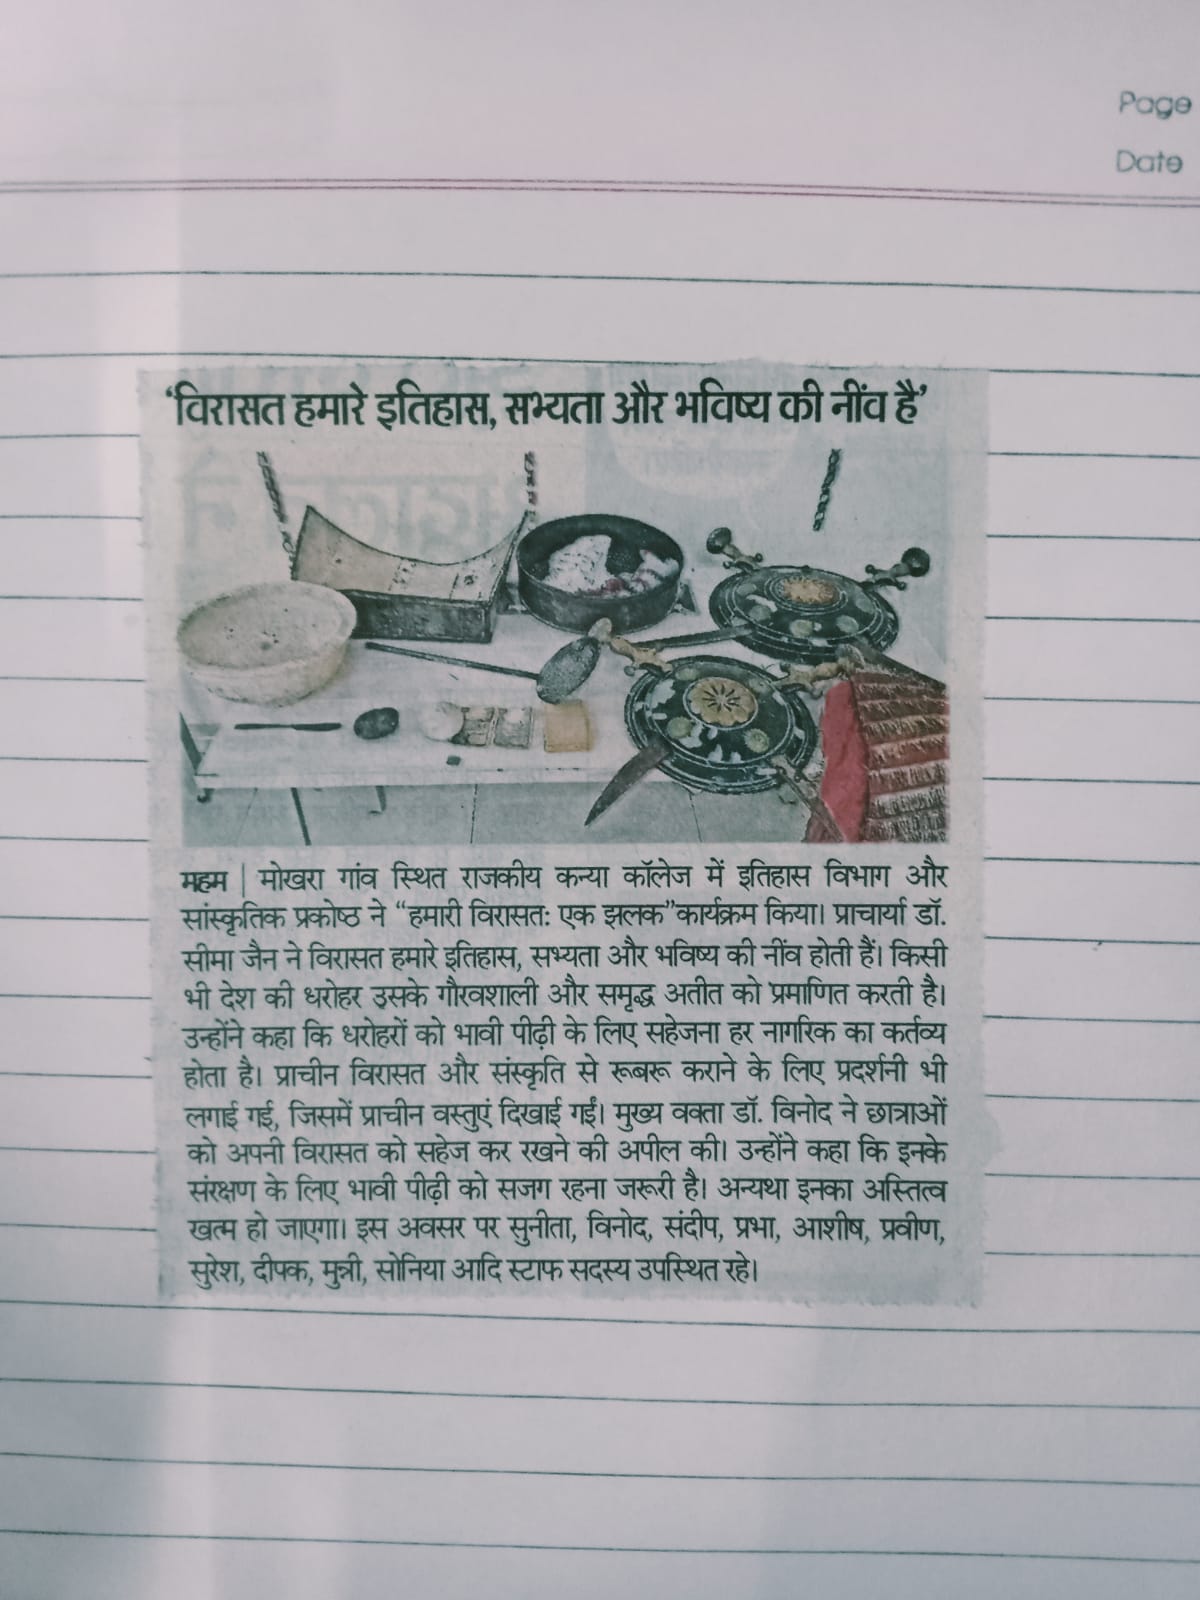 Page
Date
‘विरासत हमारे इतिहास, सभ्यता और भविष्य की नींव है’
महम | मोखरा गांव स्थित राजकीय कन्या कॉलेज में इतिहास विभाग और
सांस्कृतिक प्रकोष्ठ ने “हमारी विरासत: एक झलक”कार्यक्रम किया। प्राचार्या डॉ.
सीमा जैन ने विरासत हमारे इतिहास, सभ्यता और भविष्य की नींव होती हैं। किसी
भी देश की धरोहर उसके गौरवशाली और समृद्ध अतीत को प्रमाणित करती है।
उन्होंने कहा कि धरोहरों को भावी पीढ़ी के लिए सहेजना हर नागरिक का कर्तव्य
होता है। प्राचीन विरासत और संस्कृति से रूबरू कराने के लिए प्रदर्शनी भी
लगाई गई, जिसमें प्राचीन वस्तुएं दिखाई गईं। मुख्य वक्ता डॉ. विनोद ने छात्राओं
को अपनी विरासत को सहेज कर रखने की अपील की। उन्होंने कहा कि इनके
संरक्षण के लिए भावी पीढ़ी को सजग रहना जरूरी है। अन्यथा इनका अस्तित्व
खत्म हो जाएगा। इस अवसर पर सुनीता, विनोद, संदीप, प्रभा, आशीष, प्रवीण,
सुरेश, दीपक, मुन्नी, सोनिया आदि स्टाफ सदस्य उपस्थित रहे।